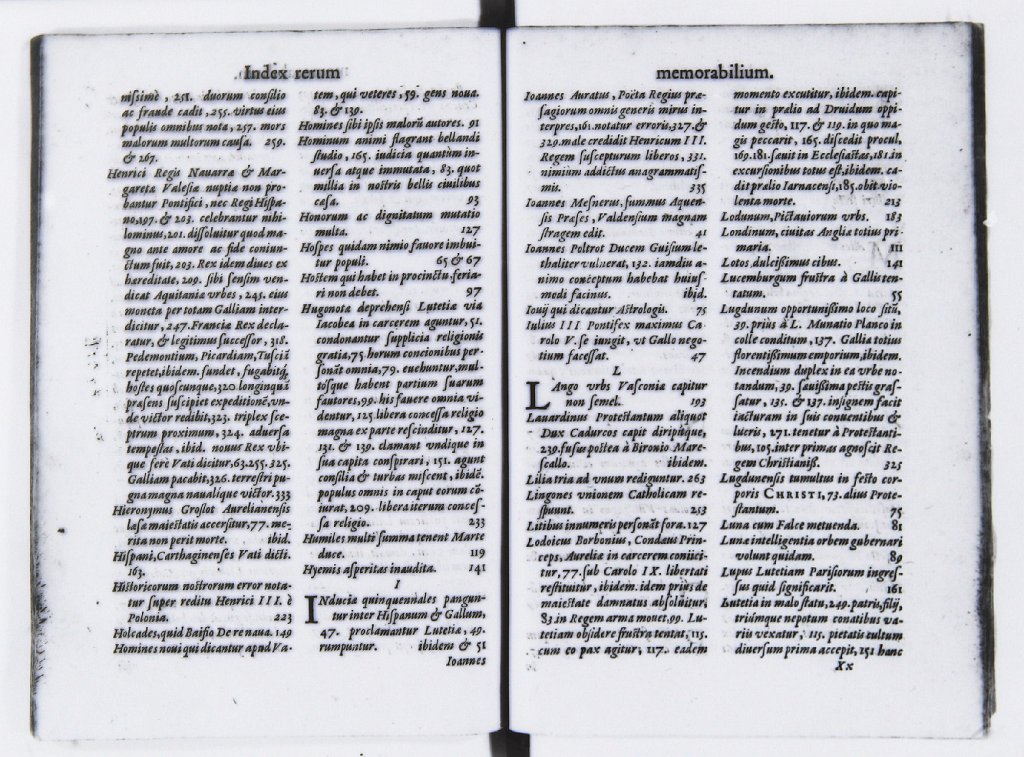 Index rerum
nissimè, 251. duorum consilio
ac fraude cadit, 255. virtus eius
populis omnibus nota, 257. mors
malorum multorum causa. 259.
& 267.
Henrici Regis Nauarra & Mar-
gareta Valesiæ nuptiæ non pro-
bantur Pontifici, nec Regi Hispa-
no, 197. & 203. celebrantur nihi-
lominus, 201. dissoluitur quod ma-
gno ante amore ac fide coniun-
ctum fuit, 203. Rex idem diues ex
hæreditate, 209. sibi sensim ven-
dicat Aquitania vrbes, 245. eius
moneta per totam Galliam inter-
dicitur, 247. Franciæ Rex decla-
ratur, & legitimus successor, 318.
Pedemontium, Picardiam, Tusciā
repetet, ibidem. fundet, fugabitq́;
hostes quoscunque, 320 longinqui
præsens suscipiet expeditionē, vn-
de victor redibit, 323. triplex sce-
ptrum proximum, 324. aduersa
tempestas, ibid. nouus Rex vbi-
que ferè Vati dicitur, 63. 255. 325.
Galliam pacabit, 326. terrestri pu-
gna magna naualique victor. 333
Hieronymus Groslot Aurelianensis
læsæ maiestatis accersitur, 77. me-
rita non perit morte. ibid.
Hispani, Carthaginenses Vati dicti.
163.
Historicorum nostrorum error nota-
tur super reditu Henrici III. è
Polonia. 223
Holcades, quid Baifio De re naua. 149
Homines noui qui dicantur apud Va-
tem, qui veteres, 59. gens noua.
83. & 139.
Homines sibi ipsis malorū autores. 91
Hominum animi flagrant bellandi
studio, 165. iudicia quantùm in-
uersa atque immutata, 83. quot
millia in nostris bellis ciuilibus
cæsa. 93
Honorum ac dignitatum mutatio
multa. 127
Hospes quidam nimio fauore imbui-
tur populi. 65 & 67
Hostem qui habet in procinctu, feria-
ri non debet. 97
Hugonota deprehensi Lutetiæ via
Iacobea in carcerem aguntur, 51.
condonantur supplicia religionis
gratia, 75. horum concionibus per-
sonāt omnia, 79. euehuntur, mul-
tosque habent partium suarum
fautores, 99. his fauere omnia vi-
dentur, 125. libera concessa religio
magna ex parte rescinditur, 127.
131. & 139. clamant vndique in
sua capita conspirari, 151. agunt
consilia & turbas miscent, ibidē.
populus omnis in caput eorum cō-
iurat, 209. libera iterum conces-
sa religio. 233
Humiles multi summa tenent Marte
duce. 119
Hyemis asperitas inaudita. 141
I
INducia quinquennales pangun-
tur inter Hispanum & Gallum,
47. proclamantur Lutetiæ, 49.
rumpuntur. ibidem & 51
Ioannes
memorabilium.
Ioannes Auratus, Poëta Regius præ-
sagiorum omnis generis mirus in-
terpres, 161. notatur erroris, 327. &
329. male credidit Henricum III.
Regem suscepturum liberos, 331.
nimium addictus anagrammatis-
mis. 335
Ioannes Mesnerus, summus Aquen-
sis Præses, Valdensium magnam
stragem edit. 41
Ioannes Poltrot Ducem Guisium le-
thaliter vulnerat, 132. iamdiu a-
nimo conceptum habebat huius-
modi facinus. ibid.
Iouij qui dicantur Astrologis. 75
Iulius III Pontifex maximus Ca-
rolo V. se iungit, vt Gallo nego-
tium facessat. 47
L
LAngo vrbs Vasconiæ capitur
non semel. 193
Lauardinus Protestantum aliquot
Dux Cadurcos capit diripitque,
239. fusus postea à Bironio Mare-
scallo. ibidem.
Lilia tria ad vnum rediguntur. 263
Lingones vnionem Catholicam re-
spuunt. 253
Litibus innumeris personāt fora. 127
Lodoicus Borbonius, Condæus Prin-
ceps, Aureliæ in carcerem coniici-
tur, 77. sub Carolo IX. libertati
restituitur, ibidem. idem prius de
maiestate damnatus absoluitur,
83. in Regem arma mouet, 99. Lu-
tetiam obsidere frustra tentat, 115.
cum eo pax agitur, 117. eadem
momento excutitur, ibidem. capi-
tur in prælio ad Druidum oppi-
dum gesto, 117. & 119. in quo ma-
gis peccarit, 165. discedit procul,
169. 181. sæuit in Ecclesiastas, 181. in
excursionibus totus est, ibidem. ca-
dit prælio Iarnacensi, 185. obit vio-
lenta morte. 213
Lodunum, Pictauiorum vrbs. 183
Londinum, ciuitas Angliæ totius pri-
maria. 111
Lotos, dulcissimus cibus. 141
Lucemburgum frustra à Gallis ten-
tatum. 55
Lugdunum opportunissimo loco sitū,
39. prius à L. Munatio Planco in
colle conditum, 137. Galliæ totius
florentissimum emporium, ibidem.
Incendium duplex in ea vrbe no-
tandum, 39. sæuissima pestis gras-
satur, 135. & 137. insignem facit
iacturam in suis conuentibus &
lucris, 271. tenetur à Protestanti-
bus, 105. inter primas agnoscit Re-
gem Christianiss. 325
Lugdunensis tumultus in festo cor-
poris CHRISTI, 73. alius Prote-
stantum. 75
Luna cum Falce metuenda. 81
Lunæ intelligentia orbem gubernari
volunt quidam. 89
Lupus Lutetiam Parisiorum ingres-
sus quid significarit. 161
Lutetia in malo statu, 249. patris, filij,
triúmque nepotum conatibus va-
riis vexatur, 115. pietatis cultum
diuersum prima accepit, 151 hanc
Xx